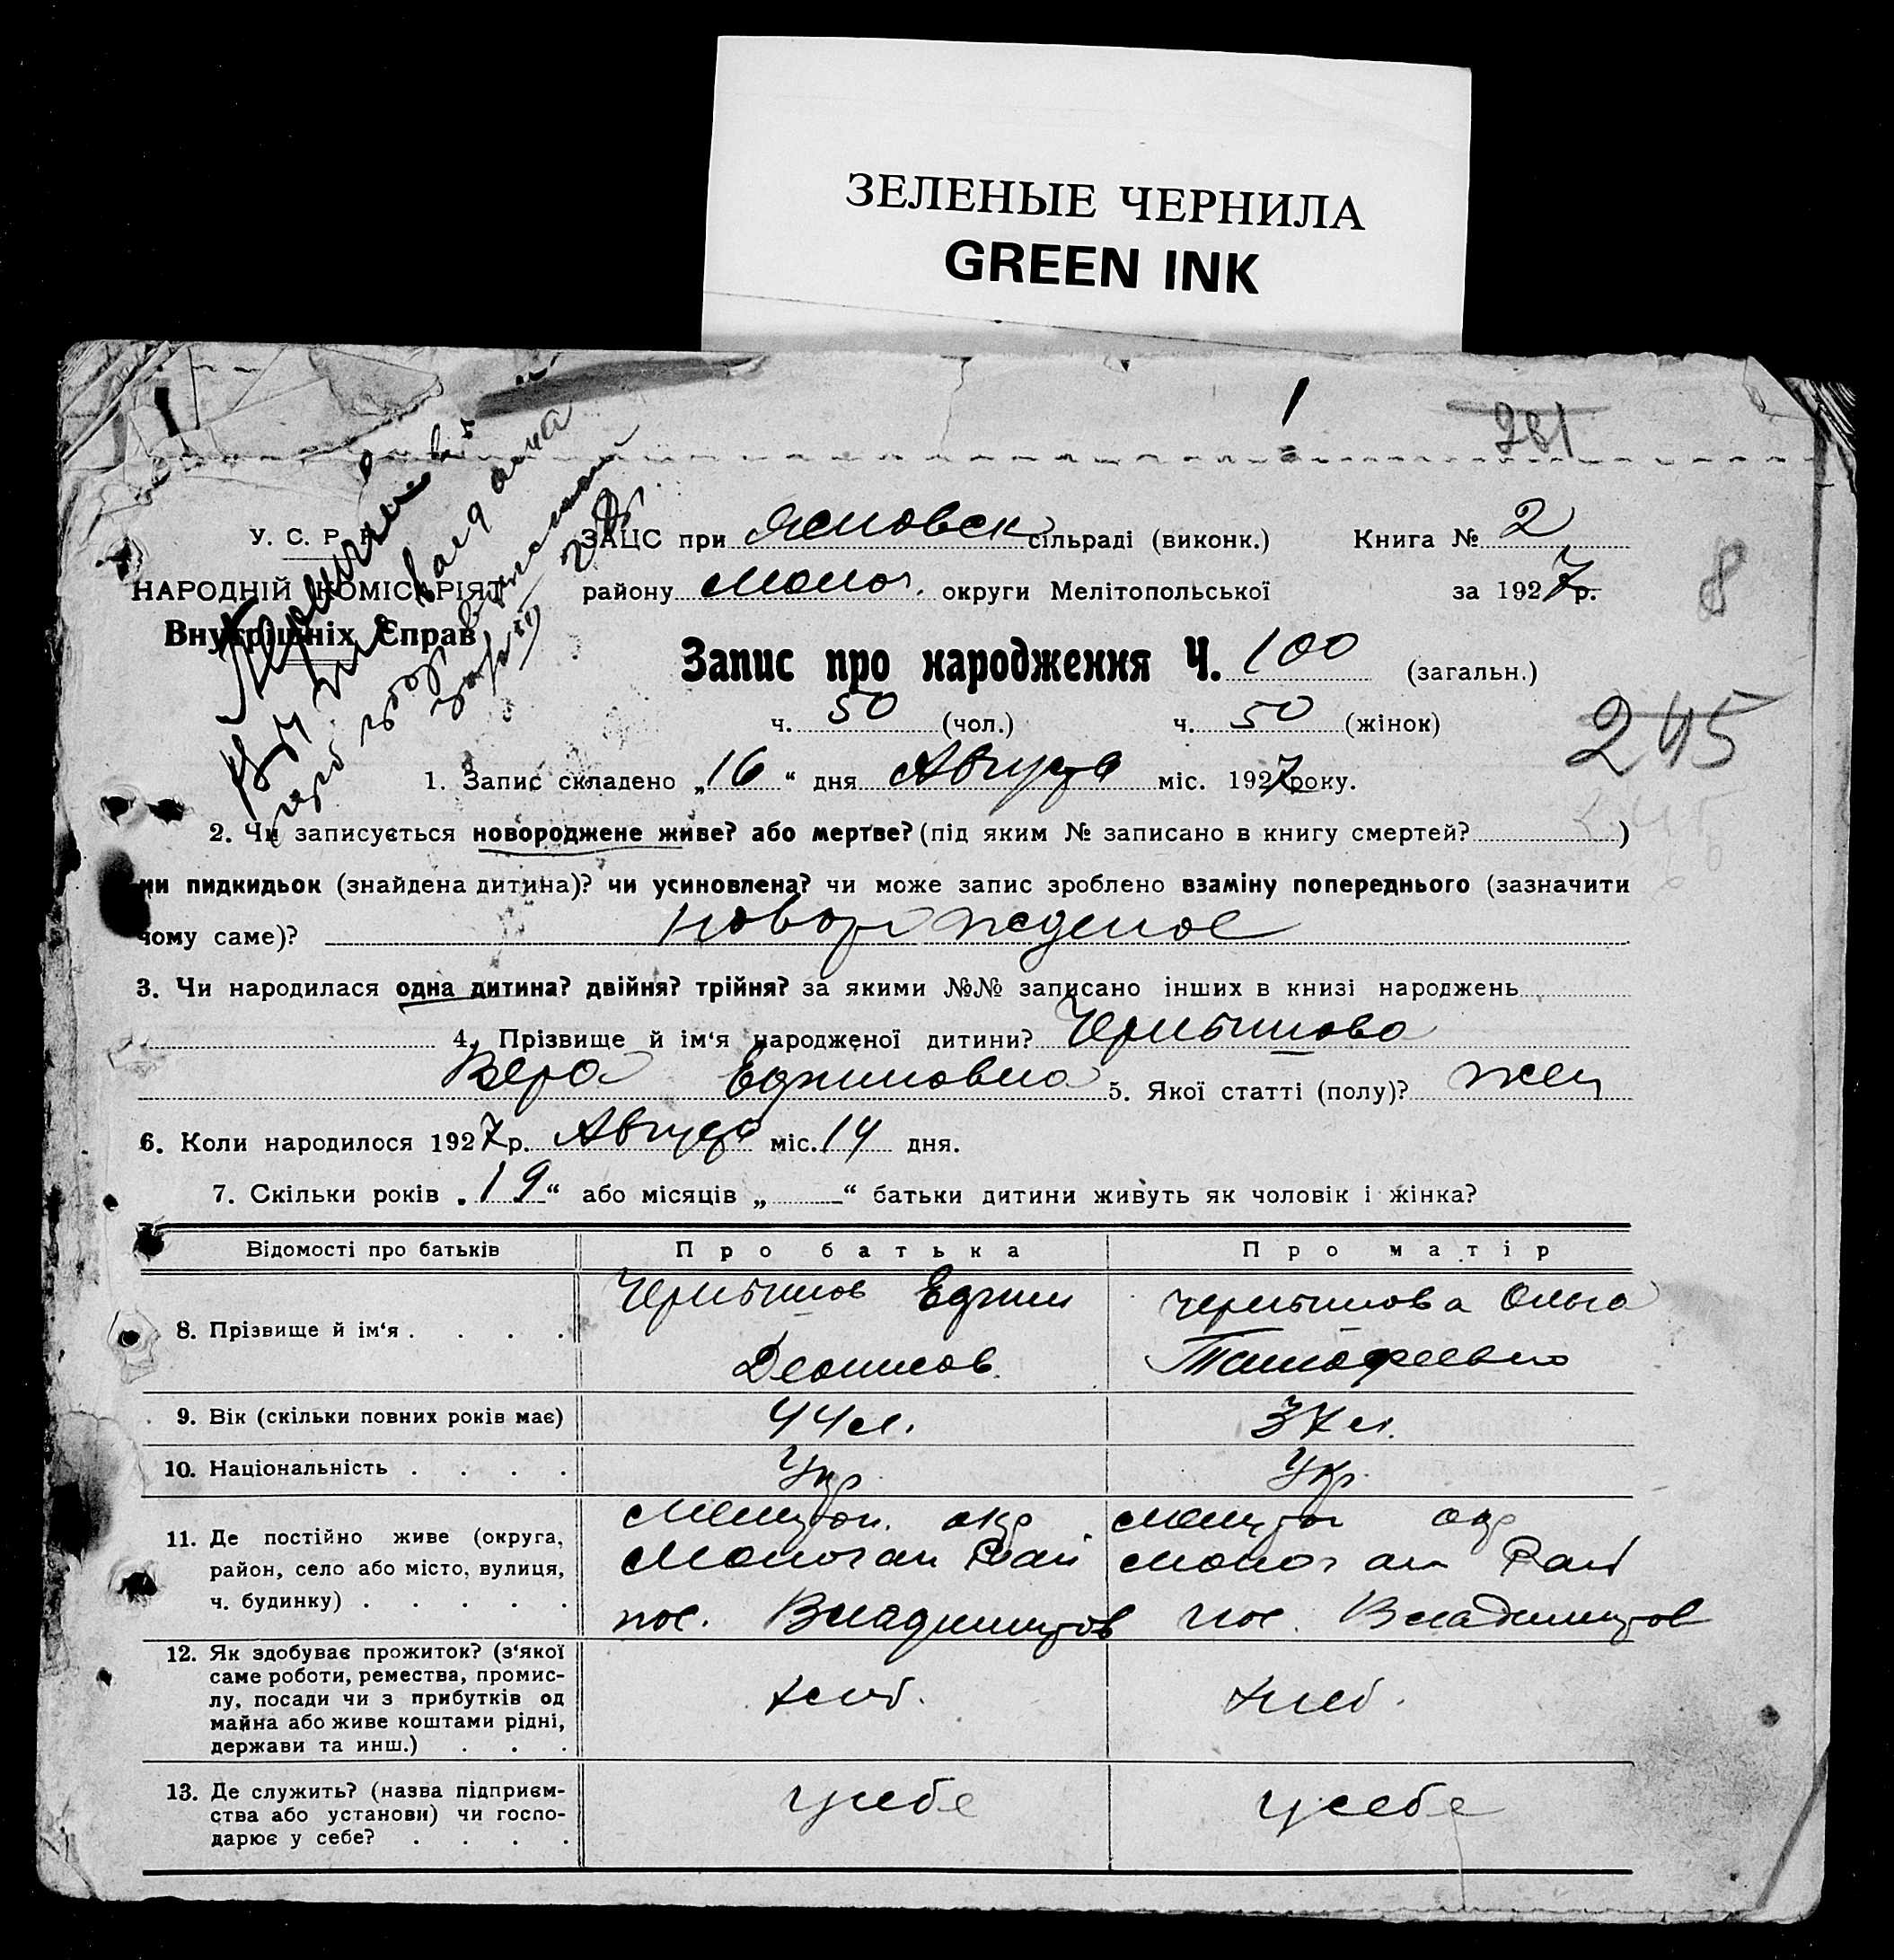 ЗЕЛЕНЫЕ ЧЕРНИЛА
GREEN INK
281
У. С. Р. Р.
НАРОДНІЙ КОМІСАРІЯТ
Внутрішніх Справ
ЗАЦС при сільраді (виконк.) Книга № 2
району округи Мелітопольської за 1927 р.
8
Запис про народження Ч. 100 (загальн.)
ч. 50 (чол.) ч. 50 (жінок)
245
1. Запис складено „16“ дня Августа міс. 1927 року.
2. Чи записується новороджене живе? або мертве? (під яким № записано в книгу смертей? )
чи пидкидьок (знайдена дитина)? чи усиновлена? чи може запис зроблено взаміну попереднього (зазначити
чому саме)? новорожденое
3. Чи народилася одна дитина? двійня? трійня? за якими №№ записано інших в книзі народжень
4. Прізвище й ім‘я народженої дитини? Чернышова
Вера 5. Якої статті (полу)? жен
6. Коли народилося 1927 р. Августа міс. 14 дня.
7. Скільки років „19“ або місяців „ “ батьки дитини живуть як чоловік і жінка?
Відомості про батьків Про батька Про матір
8. Прізвище й ім‘я . . . .
Чернышов
Чернышова Ольга
Тимофеевна
9. Вік (скільки повних років має) 44 л. 37 л.
10. Національність . . . . Укр. Укр.
11. Де постійно живе (округа,
район, село або місто, вулиця,
ч. будинку) . . . . .
Мелитоп. окр
рай
пос.
Мелитоп окр
рай
пос.
12. Як здобуває прожиток? (з‘якої
саме роботи, ремества, промис-
лу, посади чи з прибутків од
майна або живе коштами рідні,
держави та инш.) . . .
хлеб. хлеб.
13. Де служить? (назва підприєм-
ства або установи) чи госпо-
дарює у себе? . . . .
у себе у себе